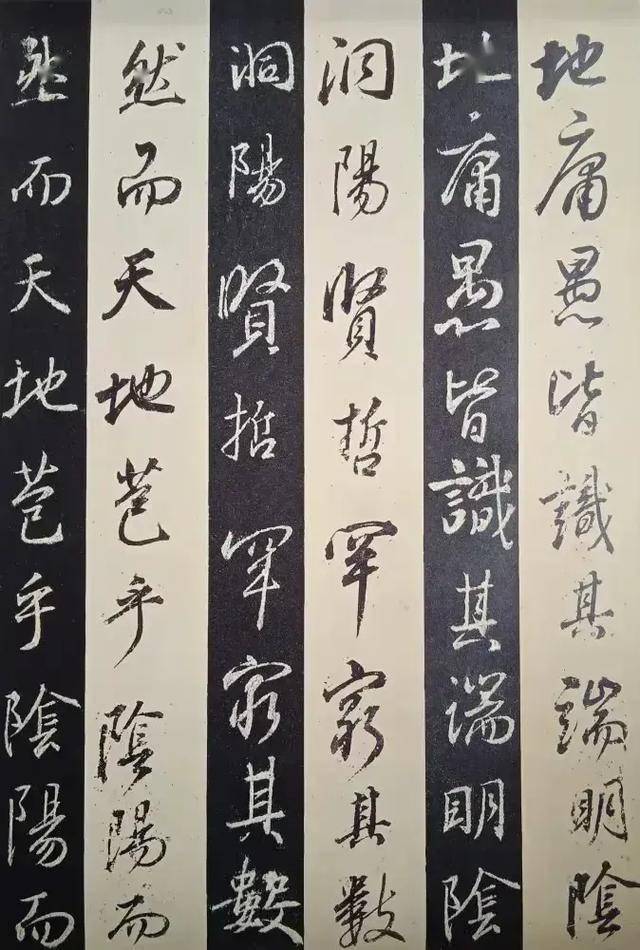 地庸愚皆識其端明陰
地庸愚皆識其端明陰
洞陽賢哲罕窮其數
洞陽賢哲罕窮其數
然而天地苞乎陰陽而
然而天地苞乎陰陽而